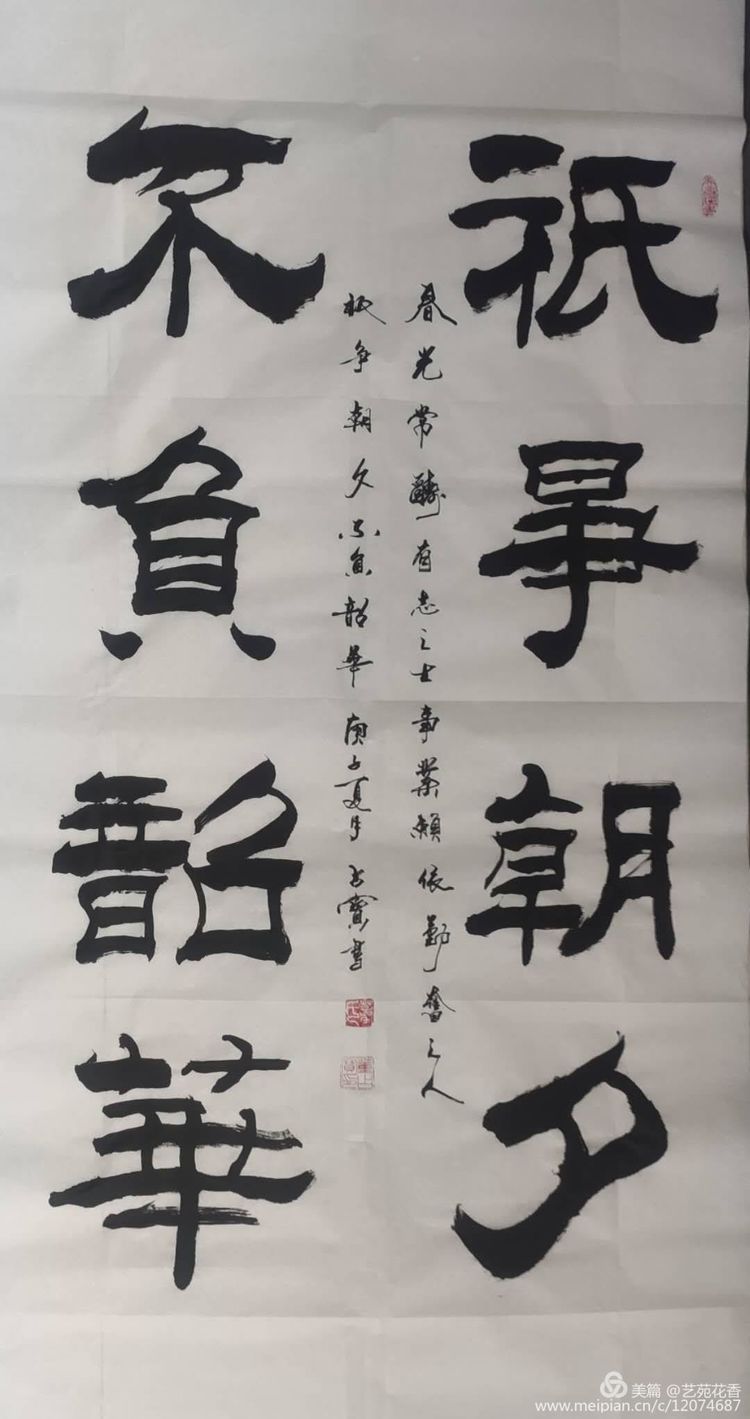 祇爭朝夕
春光常酬有志之士事業頼依勤奮之人
祇争朝夕不負韶華庚子夏月士寶書
不負韶華
美篇 @艺苑花香
www.meipian.cn/c/12074687